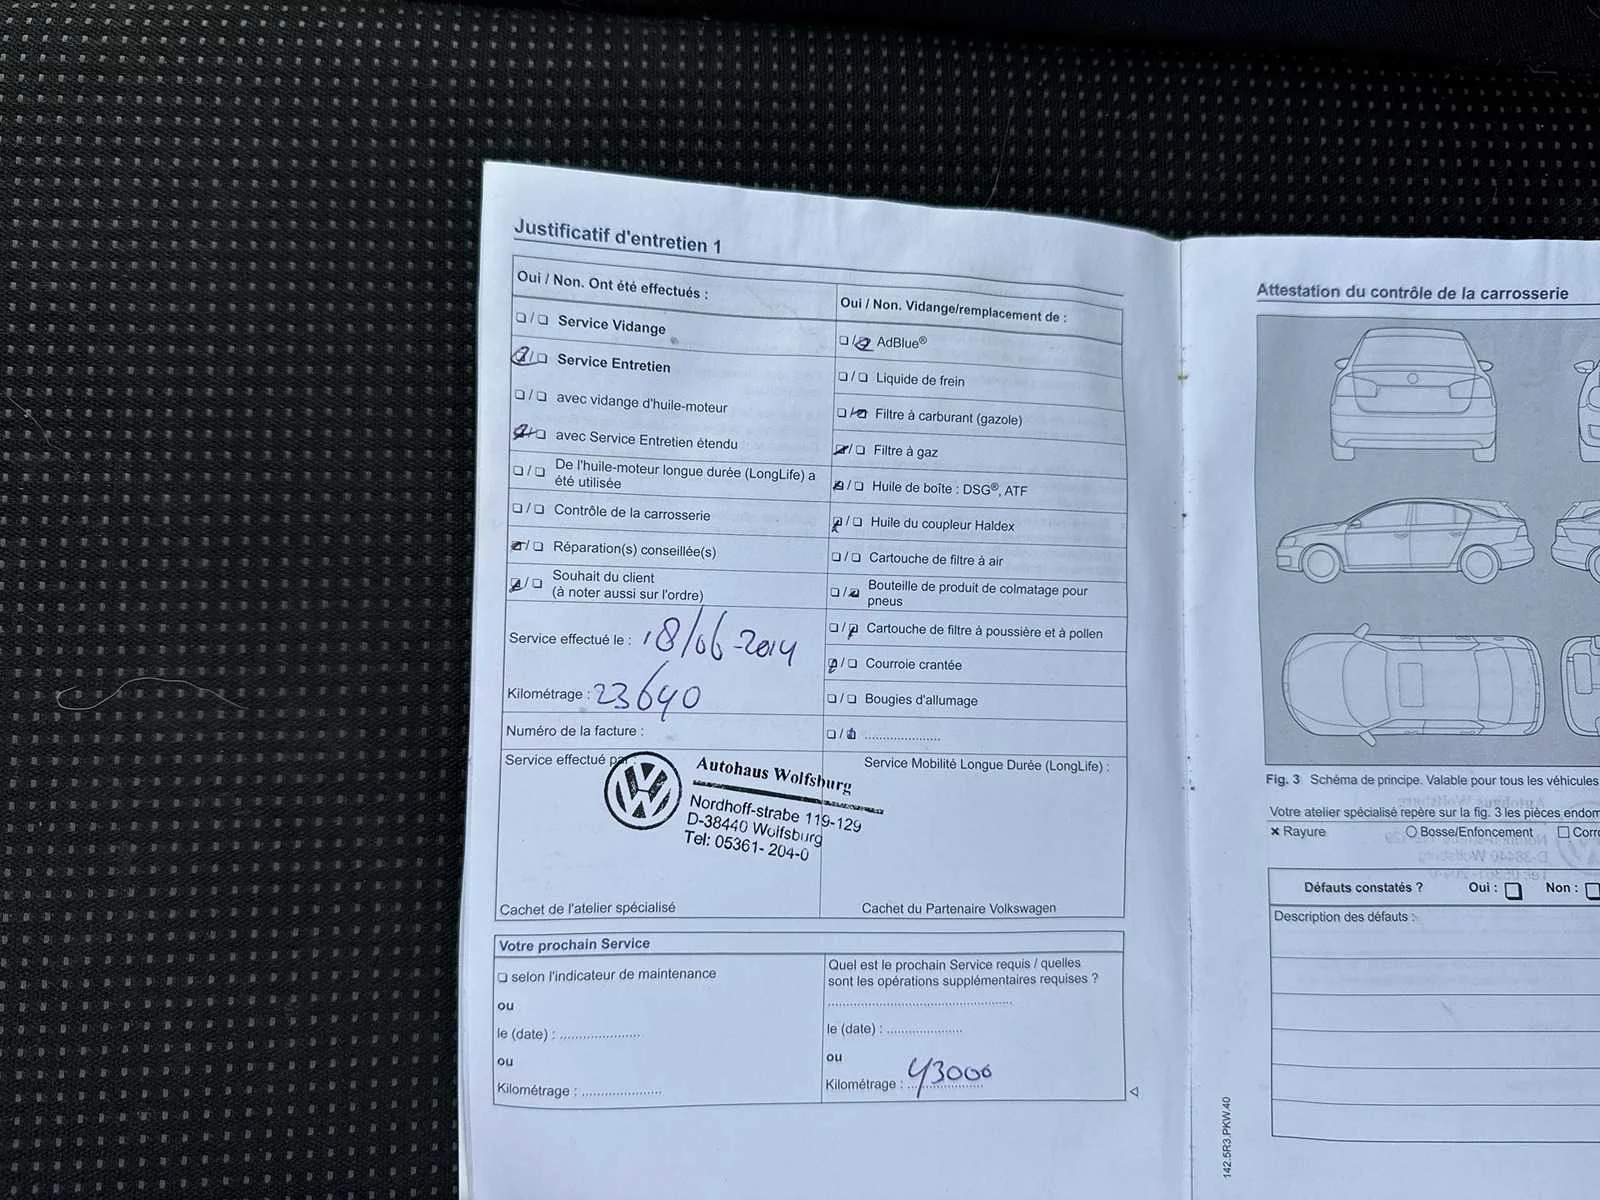 Justificatif d'entretien 1
Oui / Non. Ont été effectués :
Service Vidange
Service Entretien
avec vidange d'huile-moteur
avec Service Entretien étendu
De l'huile-moteur longue durée (LongLife) a
été utilisée
Contrôle de la carrosserie
Réparation(s) conseillée(s)
Souhait du client
(à noter aussi sur l'ordre)
Service effectué le : 18/06-2014
Kilométrage : 23640
Numéro de la facture :
Oui / Non. Vidange/remplacement de :
AdBlue®
Liquide de frein
Filtre à carburant (gazole)
Filtre à gaz
Huile de boîte : DSG®, ATF
Huile du coupleur Haldex
Cartouche de filtre à air
Bouteille de produit de colmatage pour
pneus
Cartouche de filtre à poussière et à pollen
Courroie crantée
Bougies d'allumage
Service effectué par :
Autohaus Wolfsburg
Nordhoff-strabe 119-129
D-38440 Wolfsburg
Tel: 05361-204-0
Cachet de l'atelier spécialisé
Service Mobilité Longue Durée (LongLife) :
Cachet du Partenaire Volkswagen
Votre prochain Service
selon l'indicateur de maintenance
ou
le (date) : ....................
ou
Kilométrage : ....................
Quel est le prochain Service requis / quelles
sont les opérations supplémentaires requises ?
le (date) : ...................
ou
Kilométrage : 43000
Attestation du contrôle de la carrosserie
Fig. 3 Schéma de principe. Valable pour tous les véhicules
Votre atelier spécialisé repère sur la fig. 3 les pièces endom
× Rayure ○ Bosse/Enfoncement □ Corr
Défauts constatés ? Oui : □ Non : □
Description des défauts :
142.5R3.PKW.40